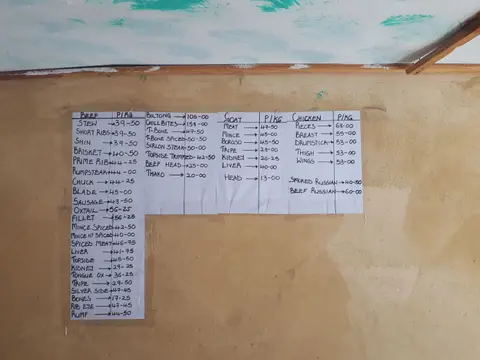 BEEF P/KG
STEW → 39-50
SHORT RIBS → 39-50
SHIN → 39-50
BRISKET → 40-50
PRIME RIB → 44-25
RUMPSTEAK → 44-00
CHUCK → 44-25
BLADE → 45-00
SAUSAGE → 43-50
OXTAIL → 56-25
FILLET → 56-25
MINCE SPICED → 42-50
MINCE N SPICED → 40-00
SPICED MEAT → 46-75
LIVER → 41-75
TOPSIDE → 45-50
KIDNEY → 29-25
TONGUE OX → 36-25
TRIPE → 29-50
SILVER SIDE → 47-45
BONES → 17-25
RIB EYE → 47-45
RUMP → 44-50
BILTONG → 108-00
CHILLBITES → 158-00
T-BONE → 49-50
T-BONE SPICED → 50-50
SIRLOIN STEAK → 50-00
TOPSIDE TRIMMED → 42-50
BEEF HEAD → 25-00
THAKO → 20-00
GOAT P/KG
MEAT → 47-50
MINCE → 45-00
BOROSO → 45-50
TRIPE → 45-50
KIDNEY → 26-25
LIVER → 40-00
HEAD → 13-00
CHICKEN P/KG
PIECES → 68-00
BREAST → 55-00
DRUMSTICK → 53-00
THIGH → 53-00
WINGS → 53-00
SMOKED RUSSIAN → 40-50
BEEF RUSSIAN → 60-00